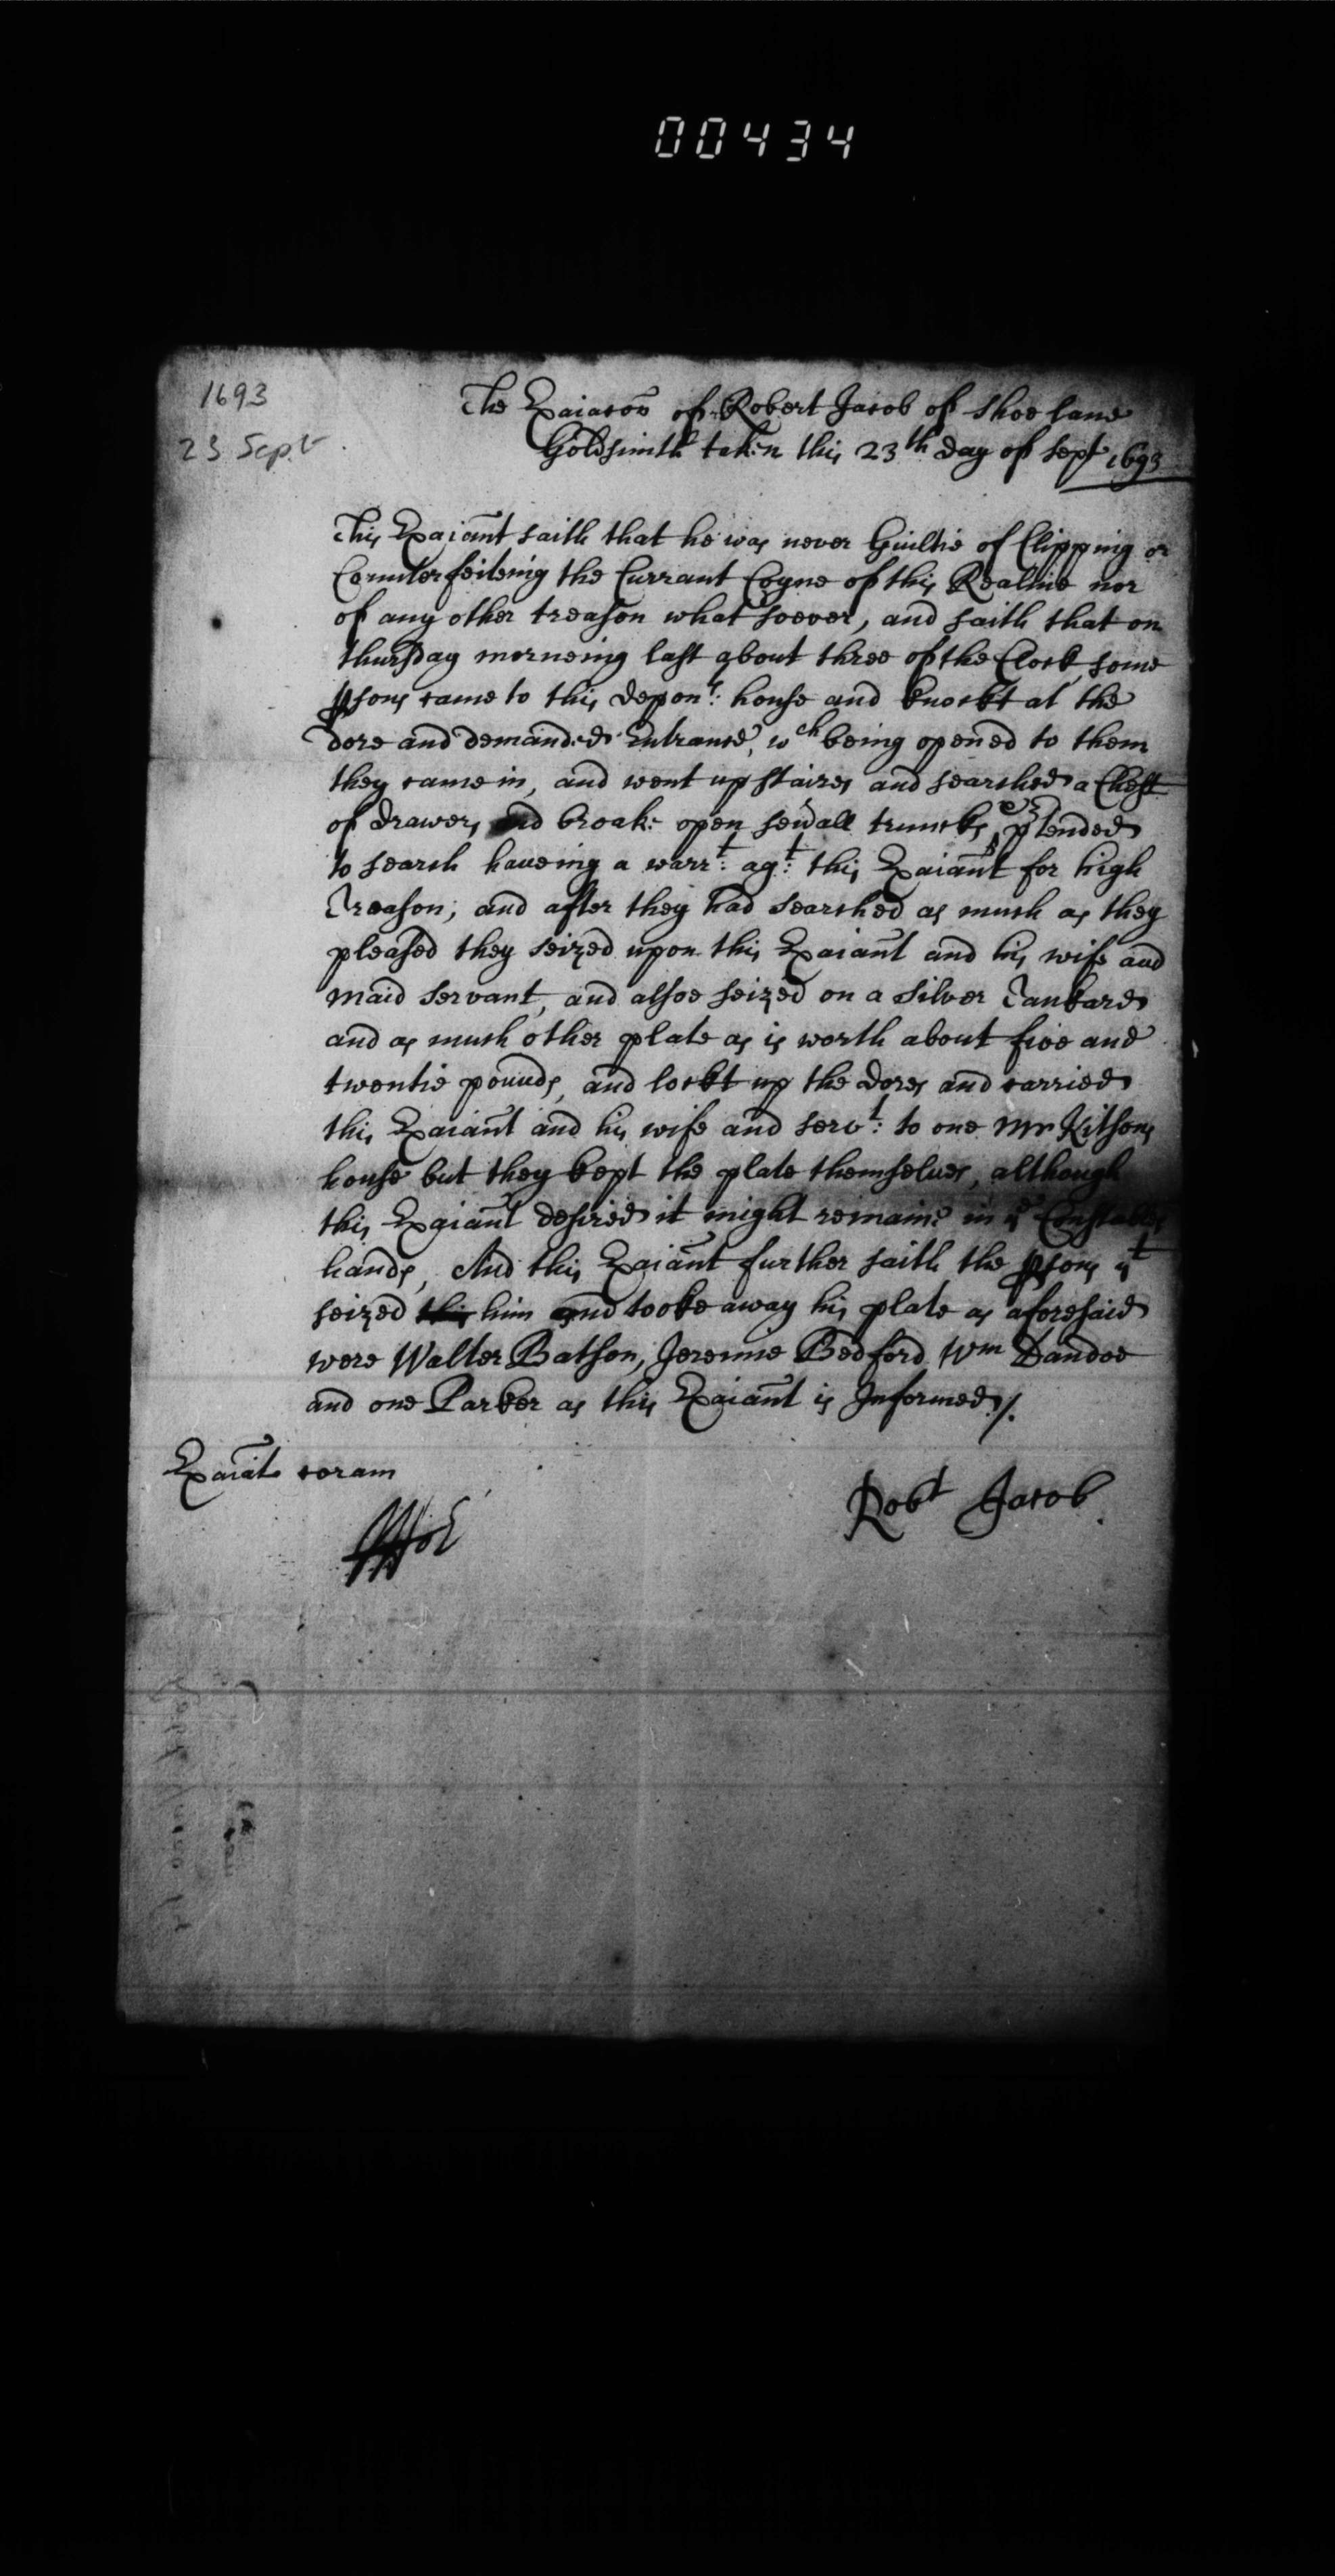 00434
1693
23 Sept
The Exaiacon of Robert Jacob of Shoe lane
Goldsmith taken this 23th day of Sept 1693
This Exaiant saith that he was never Guiltie of Clipping or
Counterfeiteing the Currant Coyne of this Realme nor
of any other treason what soever, and saith that on
thursday morneing last about three of the Clock some
psons came to this depont: house and knockt at the
dore and demanded Entrance, wch being opened to them
they came in, and went up staires and searched a Chest
of drawers and broake open sevall truncks, ptended
to search haveing a warrt: agt: this Exaiant for high
Treason; and after they had searched as much as they
pleased they seized upon this Exaiant and his wife and
maid servant, and alsoe seized on a Silver Tankard
and as much other plate as is worth about five and
twentie pounds, and lockt up the dores and carried
this Exaiant and his wife and servt: to one Mr Kitsons
house but they kept the plate themselves, although
this Exaiant desired it might remaine in ye Constables
hands, And this Exaiant further saith the psons yt
seized this him and tooke away his plate as aforesaid
were Walter Batson, Jeremie Bedford Wm Dandoe
and one Parker as this Exaiant is Informed /.
Exaiat coram
Robt Jacob